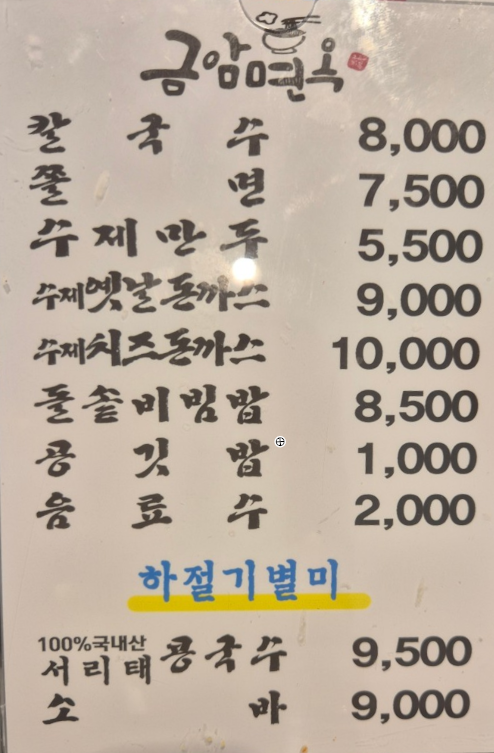 금암면옥
칼국수 8,000
쫄면 7,500
수제만두 5,500
수제옛날돈까스 9,000
수제치즈돈까스 10,000
돌솥비빔밥 8,500
공깃밥 1,000
음료수 2,000
하절기별미
100%국내산
서리태콩국수 9,500
소바 9,000